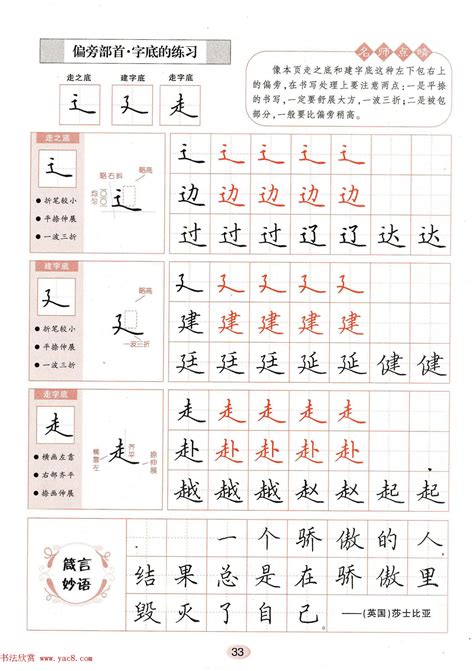 偏旁部首·字底的练习
走之底 建字底 走字底
辶 廴 走
名师点睛
像本页走之底和建字底这种左下包右上
的偏旁，在书写处理上要注意两点：一是平捺
的书写，一定要舒展大方，一波三折；二是被包
部分，一般要比偏旁稍高。
走之底
辶
●折笔较小
●平捺伸展
●一波三折
略右斜
略高
均匀
辶
辶 辶 辶 辶 辶
边 边 边 边 边
过 过 过 辽 辽 达 达
建字底
廴
●折笔较小
●平捺伸展
●一波三折
略高
廴
一波三折
廴 廴 廴 廴 廴
建 建 建 建 建
廷 廷 廷 延 延 健 健
走字底
走
●横画左靠
●右部齐平
●捺画伸展
横靠左
走
齐平
捺伸展
走 走 走 走 走
赴 赴 赴 赴 赴
越 越 越 赵 赵 起 起
箴言
妙语
一个骄傲的人
结果总是在骄傲里
毁灭了自己
——(英国)莎士比亚
33
书法欣赏 www.yac8.com